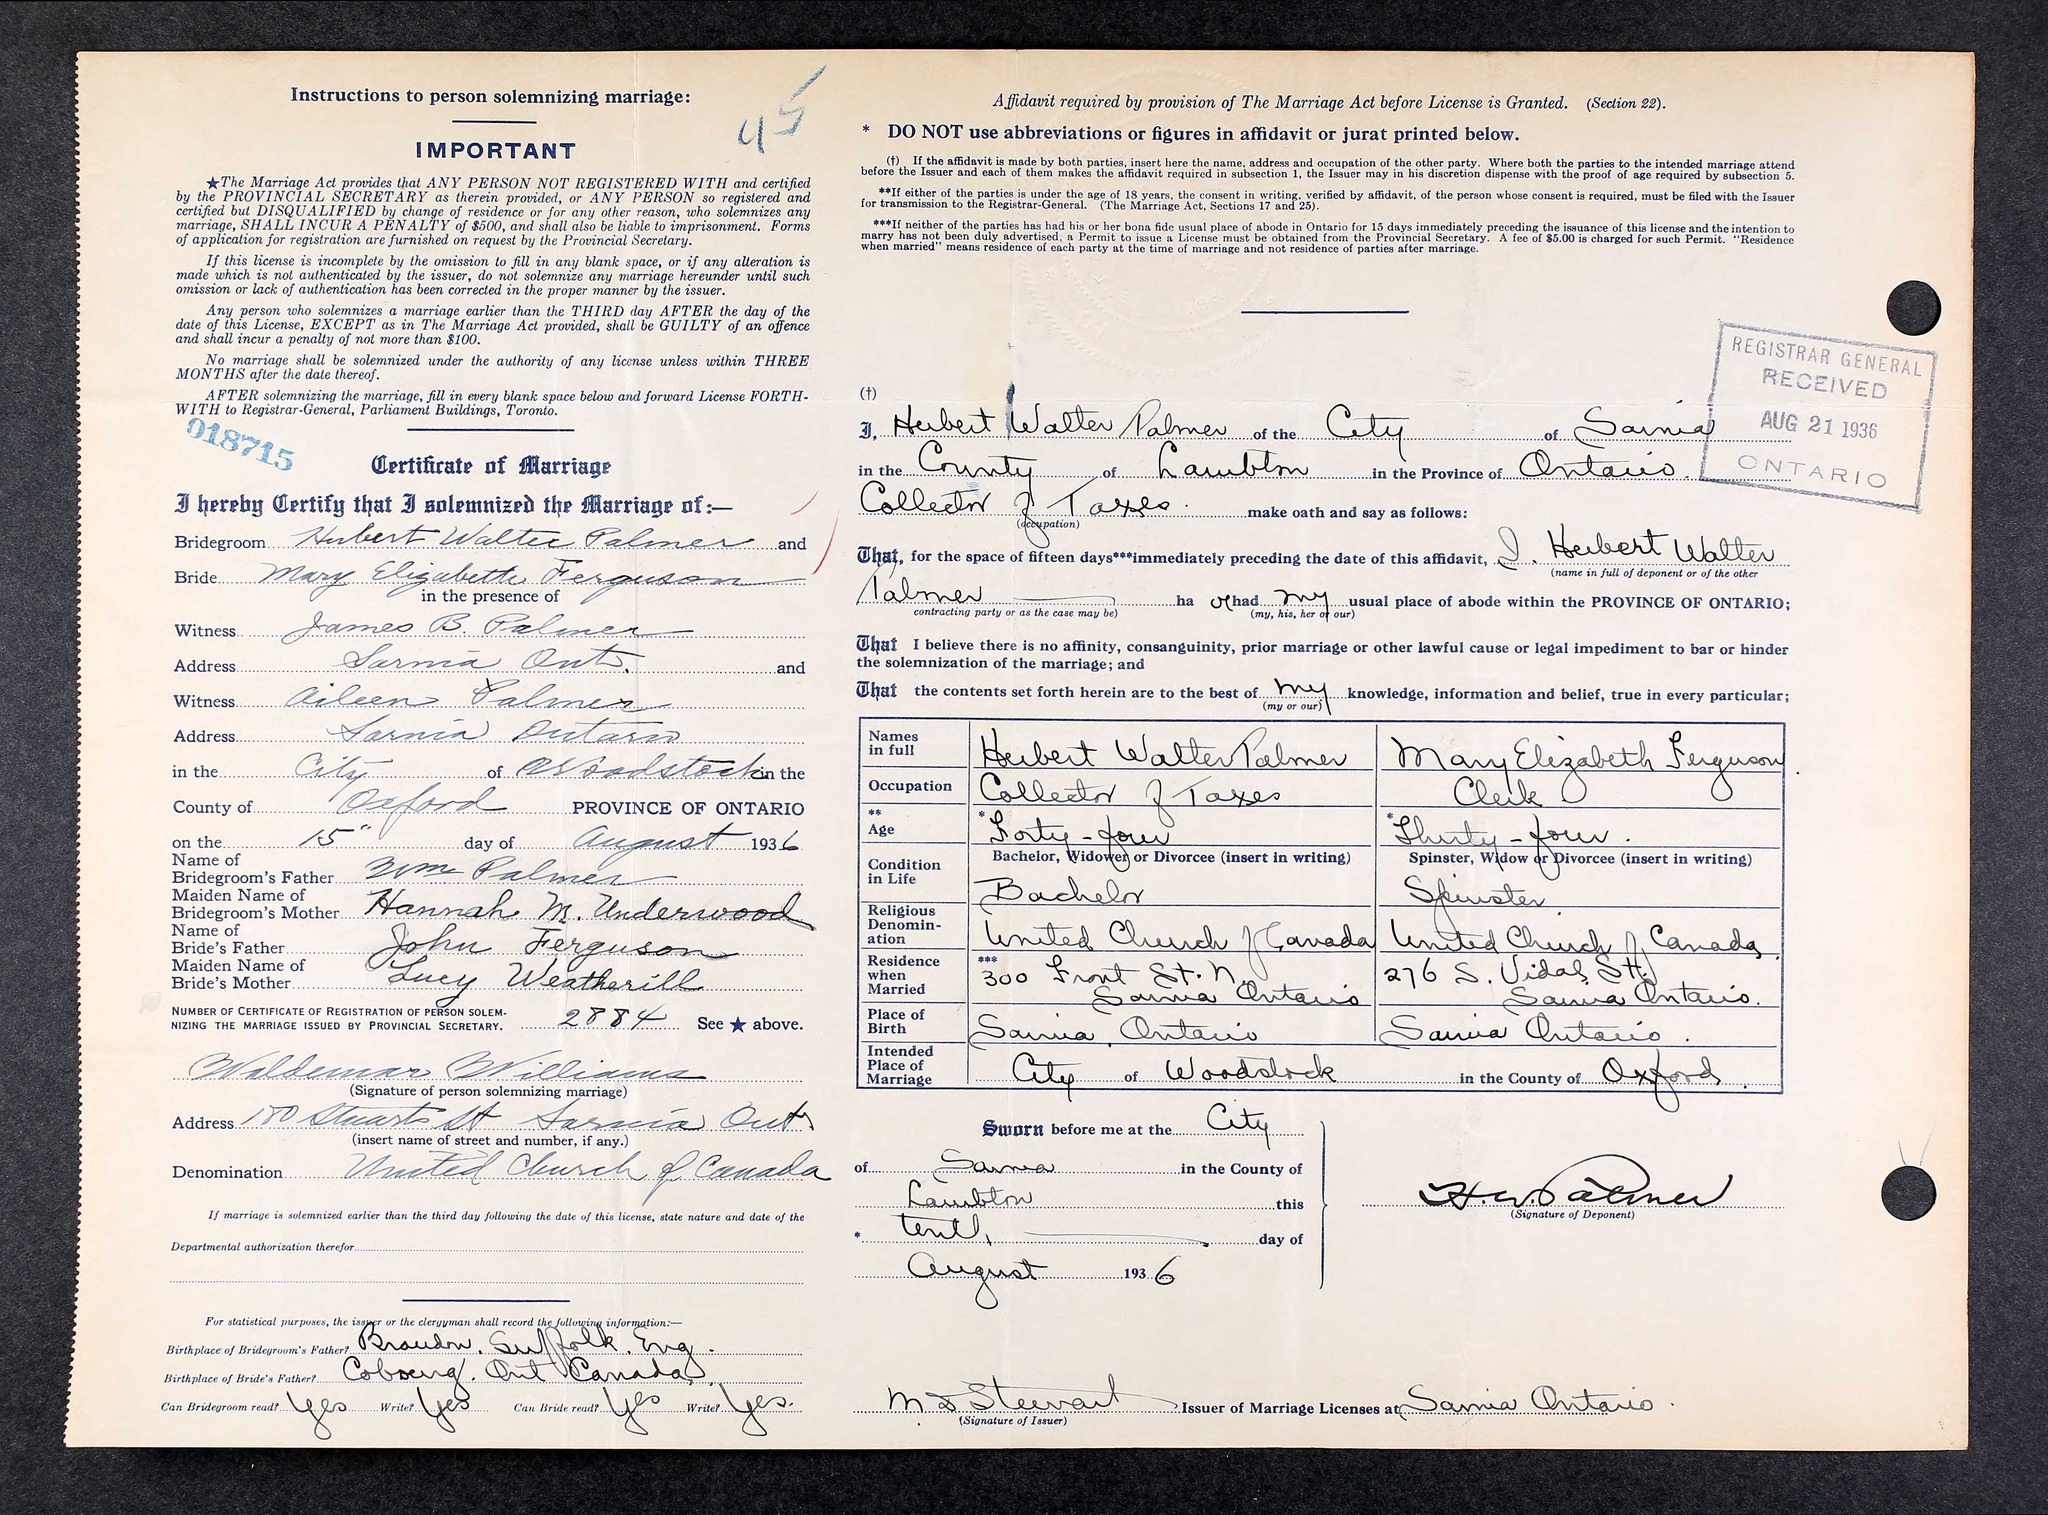 Instructions to person solemnizing marriage:
45
IMPORTANT
★The Marriage Act provides that ANY PERSON NOT REGISTERED WITH and certified
by the PROVINCIAL SECRETARY as therein provided, or ANY PERSON so registered and
certified but DISQUALIFIED by change of residence or for any other reason, who solemnizes any
marriage, SHALL INCUR A PENALTY of $500, and shall also be liable to imprisonment. Forms
of application for registration are furnished on request by the Provincial Secretary.
If this license is incomplete by the omission to fill in any blank space, or if any alteration is
made which is not authenticated by the issuer, do not solemnize any marriage hereunder until such
omission or lack of authentication has been corrected in the proper manner by the issuer.
Any person who solemnizes a marriage earlier than the THIRD day AFTER the day of the
date of this License, EXCEPT as in The Marriage Act provided, shall be GUILTY of an offence
and shall incur a penalty of not more than $100.
No marriage shall be solemnized under the authority of any license unless within THREE
MONTHS after the date thereof.
AFTER solemnizing the marriage, fill in every blank space below and forward License FORTH-
WITH to Registrar-General, Parliament Buildings, Toronto.
018715
Certificate of Marriage
I hereby Certify that I solemnized the Marriage of:—
Bridegroom Hubert Walter Palmer and
Bride Mary Elizabeth Ferguson
in the presence of
Witness James B. Palmer
Address Sarnia Ont. and
Witness Aileen Palmer
Address Sarnia Ontario
in the City of Woodstock in the
County of Oxford PROVINCE OF ONTARIO
on the 15" day of August 1936
Name of
Bridegroom's Father Wm Palmer
Maiden Name of
Bridegroom's Mother Hannah M. Underwood
Name of
Bride's Father John Ferguson
Maiden Name of
Bride's Mother Lucy Weatherill
NUMBER OF CERTIFICATE OF REGISTRATION OF PERSON SOLEM-
NIZING THE MARRIAGE ISSUED BY PROVINCIAL SECRETARY. 2884 See ★ above.
Waldemar Williams
(Signature of person solemnizing marriage)
Address 180 Stuart St Sarnia Ont
(insert name of street and number, if any.)
Denomination United Church of Canada
If marriage is solemnized earlier than the third day following the date of this license, state nature and date of the
Departmental authorization therefor
For statistical purposes, the issuer or the clergyman shall record the following information:—
Birthplace of Bridegroom's Father? Brandon. Suffolk. Eng.
Birthplace of Bride's Father? Cobourg. Ont Canada.
Can Bridegroom read? Yes Write? Yes Can Bride read? Yes Write? Yes.
Affidavit required by provision of The Marriage Act before License is Granted. (Section 22).
* DO NOT use abbreviations or figures in affidavit or jurat printed below.
(†) If the affidavit is made by both parties, insert here the name, address and occupation of the other party. Where both the parties to the intended marriage attend
before the Issuer and each of them makes the affidavit required in subsection 1, the Issuer may in his discretion dispense with the proof of age required by subsection 5.
**If either of the parties is under the age of 18 years, the consent in writing, verified by affidavit, of the person whose consent is required, must be filed with the Issuer
for transmission to the Registrar-General. (The Marriage Act, Sections 17 and 25).
***If neither of the parties has had his or her bona fide usual place of abode in Ontario for 15 days immediately preceding the issuance of this license and the intention to
marry has not been duly advertised, a Permit to issue a License must be obtained from the Provincial Secretary. A fee of $5.00 is charged for such Permit. "Residence
when married" means residence of each party at the time of marriage and not residence of parties after marriage.
REGISTRAR GENERAL
RECEIVED
AUG 21 1936
ONTARIO
(†)
I, Herbert Walter Palmer of the City of Sarnia
in the County of Lambton in the Province of Ontario.
Collector of Taxes. make oath and say as follows:
(occupation)
That, for the space of fifteen days***immediately preceding the date of this affidavit, I. Herbert Walter
(name in full of deponent or of the other
Palmer ha or had my usual place of abode within the PROVINCE OF ONTARIO;
contracting party or as the case may be) (my, his, her or our)
That I believe there is no affinity, consanguinity, prior marriage or other lawful cause or legal impediment to bar or hinder
the solemnization of the marriage; and
That the contents set forth herein are to the best of my knowledge, information and belief, true in every particular;
(my or our)
Names
in full Herbert Walter Palmer Mary Elizabeth Ferguson.
Occupation Collector of Taxes Clerk
**
Age *Forty-four *Thirty-four.
Condition
in Life Bachelor, Widower or Divorcee (insert in writing) Spinster, Widow or Divorcee (insert in writing)
Bachelor Spinster.
Religious
Denomin-
ation United Church of Canada United Church of Canada.
Residence
when
Married *** 300 Front St. N. 276 S. Vidal St.
Sarnia Ontario Sarnia Ontario.
Place of
Birth Sarnia. Ontario Sarnia Ontario.
Intended
Place of
Marriage City of Woodstock in the County of Oxford.
Sworn before me at the City
of Sarnia in the County of
Lambton this
* tenth day of
August 1936
H. W. Palmer
(Signature of Deponent)
M D Stewart Issuer of Marriage Licenses at Sarnia Ontario.
(Signature of Issuer)